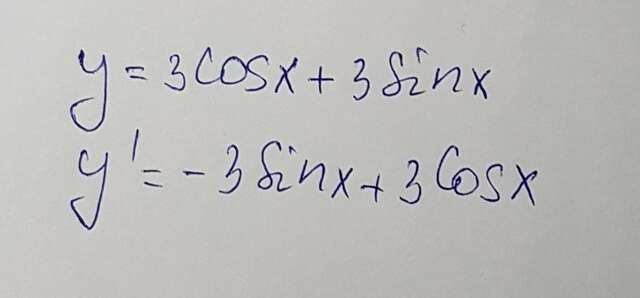 y = 3 cosx + 3 sinx
y' = - 3 sinx + 3 cosx